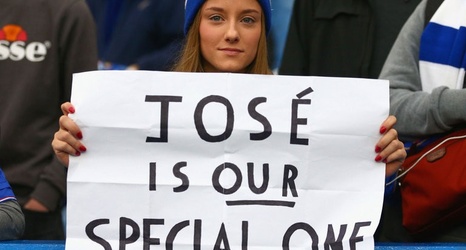 ellesse
JOSÉ
IS OUR
SPECIAL ONE